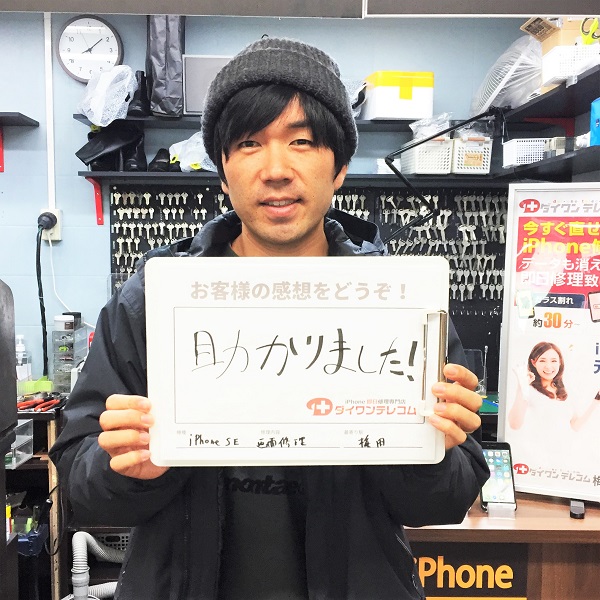 お客様の感想をどうぞ!
助かりました!
iPhone 即日修理専門店
ダイワンテレコム
iPhone SE 画面修理
ダイワンテレコム
今すぐ直せ
iPhone修
データも消え
即日修理致
ガラス割れ
約30分
ダイワンテレコム
iPhone